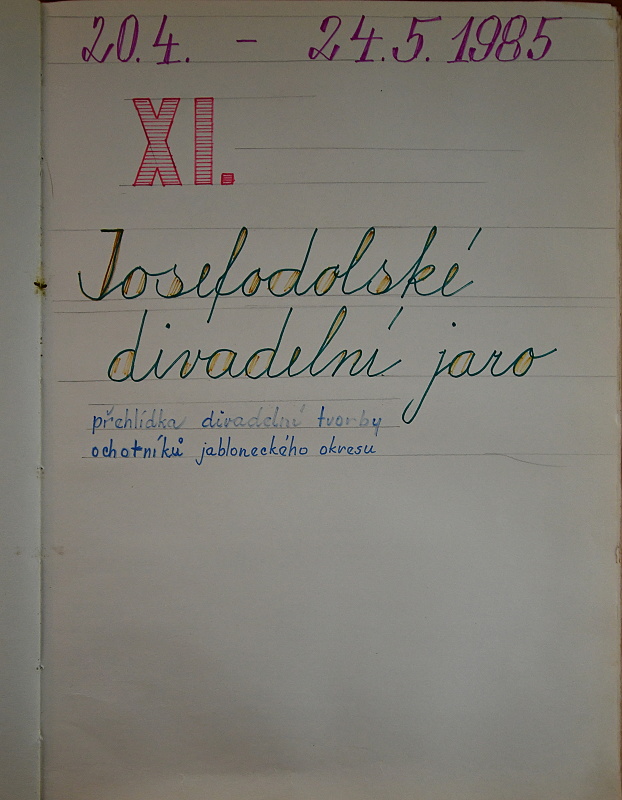 20.4. - 24.5.1985
XI.
Josefodolské
divadelní jaro
přehlídka divadelní tvorby
ochotníků jabloneckého okresu